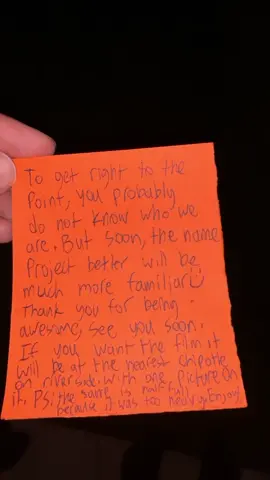 To get right to the
Point, you probably
do not know who we
are. But soon, the name
Project better will be
much more familiar
Thank you for being
awesome, see you soon.
If you want the film it
will be at the nearest chipotle
on riverside. with one picture on
it. PS: the is
because it was too heavy. Enjoy!